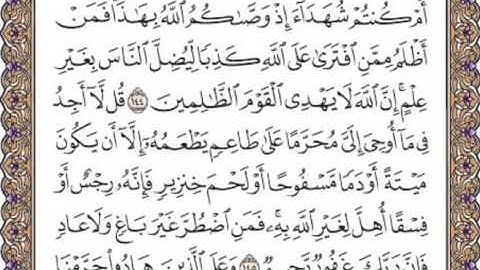 أَمْ كُنتُمْ شُهَدَآءَ إِذْ وَصَّىٰكُمُ ٱللَّهُ بِهَٰذَا فَمَنْ
أَظْلَمُ مِمَّنِ ٱفْتَرَىٰ عَلَى ٱللَّهِ كَذِبًا لِّيُضِلَّ ٱلنَّاسَ بِغَيْرِ
عِلْمٍ ۗ إِنَّ ٱللَّهَ لَا يَهْدِى ٱلْقَوْمَ ٱلظَّٰلِمِينَ ١٤٤ قُل لَّآ أَجِدُ
فِى مَآ أُوحِىَ إِلَىَّ مُحَرَّمًا عَلَىٰ طَاعِمٍ يَطْعَمُهُۥٓ إِلَّآ أَن يَكُونَ
مَيْتَةً أَوْ دَمًا مَّسْفُوحًا أَوْ لَحْمَ خِنزِيرٍ فَإِنَّهُۥ رِجْسٌ أَوْ
فِسْقًا أُهِلَّ لِغَيْرِ ٱللَّهِ بِهِۦ ۚ فَمَنِ ٱضْطُرَّ غَيْرَ بَاغٍ وَلَا عَادٍ
فَإِنَّ رَبَّكَ غَفُورٌ رَّحِيمٌ ١٤٥ وَعَلَى ٱلَّذِينَ هَادُوا۟ حَرَّمْنَا